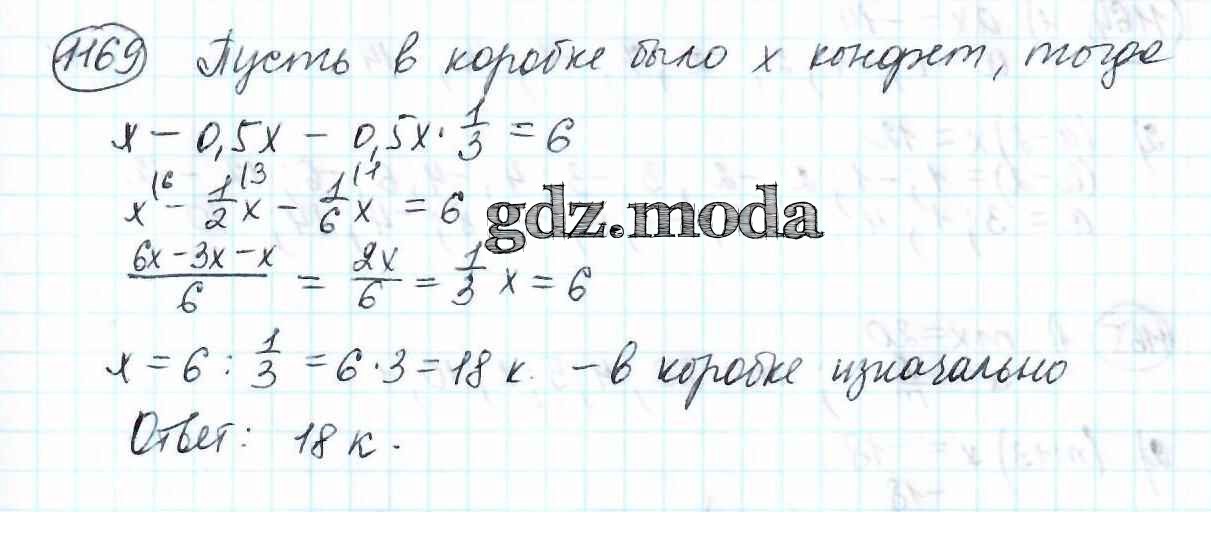 1169 Пусть в коробке было x конфет, тогда
x - 0,5x - 0,5x · 1/3 = 6
x\6 - 1/2\3 x - 1/6\1 x = 6 gdz.moda
(6x - 3x - x)/6 = 2x/6 = 1/3 x = 6
x = 6 : 1/3 = 6 · 3 = 18 к. - в коробке изначально
Ответ: 18 к.